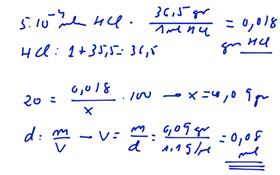 5.10⁻⁴ mol HCl . 36,5 gr / 1 mol HCl = 0,018 gr HCl
HCl: 1+35,5=36,5
20 = 0,018 / x . 100 → x = 0,09 gr
d: m / V → V = m / d = 0,09 gr / 1,1 g/ml = 0,08 ml